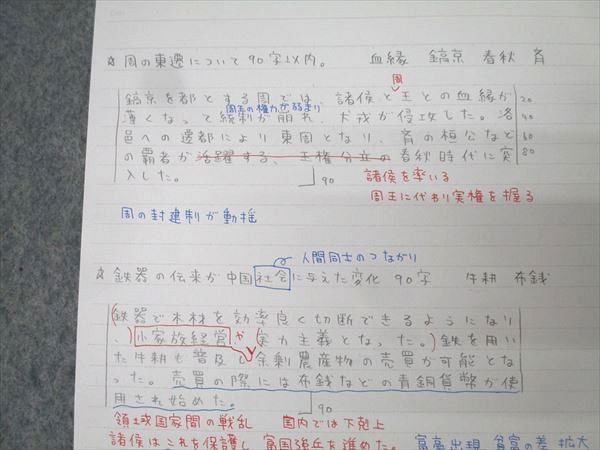 ☆ 周の東遷について90字以内。 血縁 鎬京 春秋 斉
周
鎬京を都とする周では、諸侯と王との血縁が 20
周王の権力が弱まり
薄くなって統制が崩れ、犬戎が侵攻した。洛 40
邑への遷都により東周となり、斉の桓公など 60
の覇者が活躍する、王権分立の春秋時代に突 80
入した。 90
諸侯を率いる
周王に代わり実権を握る
周の封建制が動揺
人間同士のつながり
☆ 鉄器の伝来が中国社会に与えた変化 90字 牛耕 布銭
鉄器で木材を効率良く切断できるようになり
、小家族経営が実力主義となった。鉄を用い
た牛耕も普及し余剰農産物の売買が可能とな
った。売買の際には布銭などの青銅貨幣が使
用され始めた。 90
領土国家間の戦乱 国内では下剋上
諸侯はこれを保護し、富国強兵を進めた。 富商出現 貧富の差 拡大